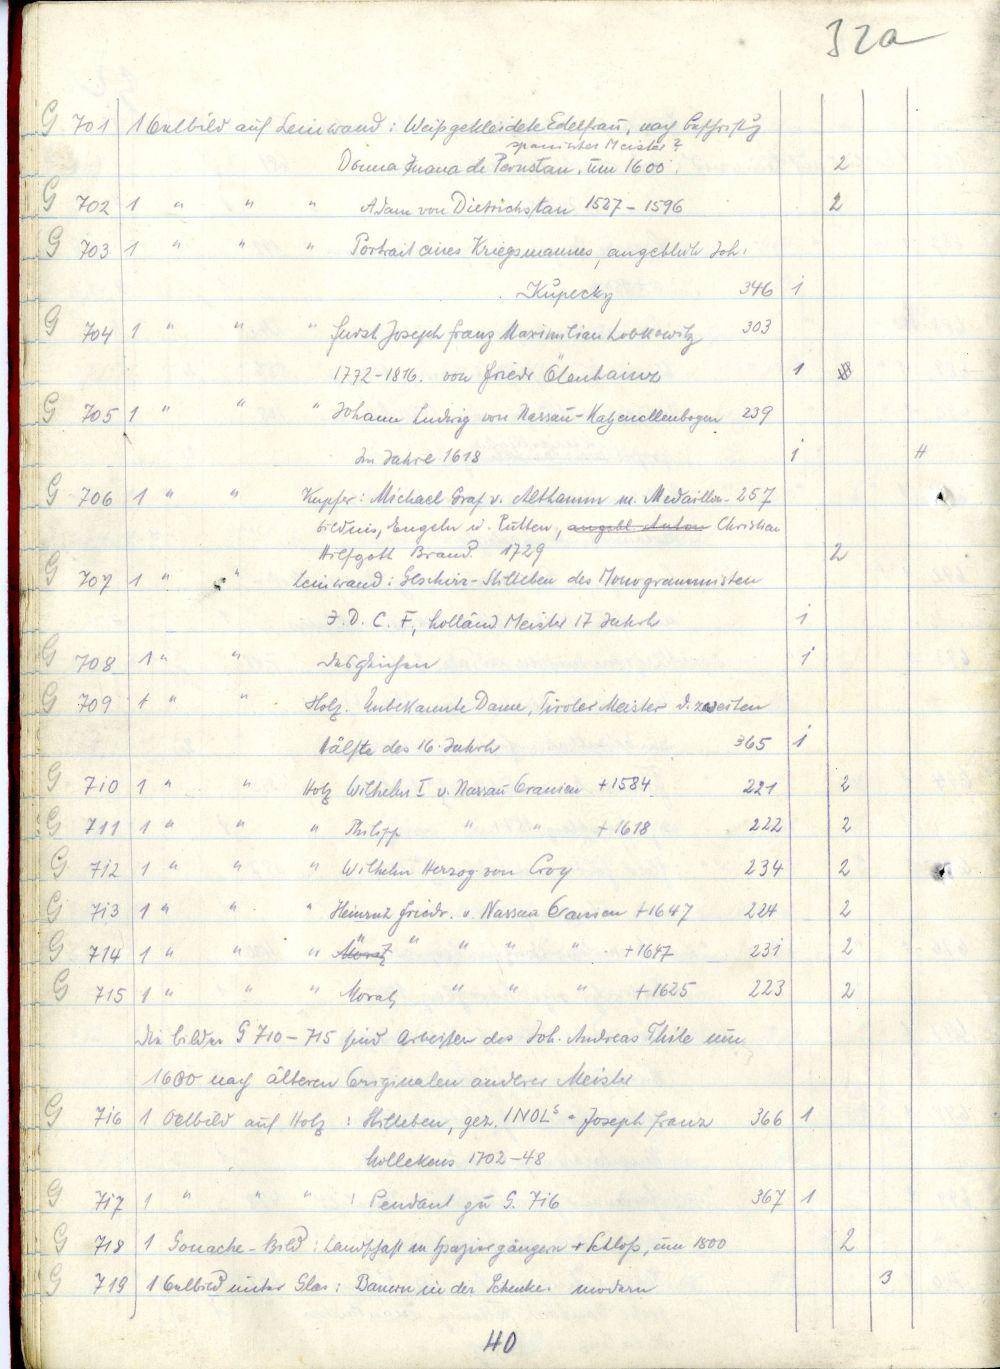 32a
G 701 1 Oelbild auf Leinwand: Weißgekleidete Edelfrau, nach
spanischer Meister?
Donna Juana de Pernstan, um 1600. 2
G 702 1 " " " Adam von Dietrichstan 1527-1596 2
G 703 1 " " " Portrait eines Kriegsmannes, angeblich Joh.
Kupecky 346 1
G 704 1 " " " Fürst Joseph Franz Maximilian Lobkowitz 303
1772-1816. von Friedr Ölenhainz 1
G 705 1 " " " Johann Ludwig von Nassau-Katzenollenbogen 239
Im Jahre 1618 1 H
G 706 1 " " Kupfer: Michael Graf v. Althamm m. Medaillon- 257
bildnis, Engeln u. Putten, angebl. Anton Christian
Hilfgott Brand. 1729 2
G 707 1 " " Leinwand: Geschirr-Stilleben des Monogrammisten
J. D. C. F, holländ Meister 17 Jahrh 1
G 708 1 " " desgleichen 1
G 709 1 " " Holz. Unbekannte Dame, Tiroler Meister d. zweiten
Hälfte des 16. Jahrh 365 1
G 710 1 " " Holz Wilhelm I v. Nassau Oranien +1584 221 2
G 711 1 " " " Philipp " " +1618 222 2
G 712 1 " " " Wilhelm Herzog von Croy 234 2
G 713 1 " " " Heinrich Friedr. v. Nassau Oranien +1647 224 2
G 714 1 " " " Moratz " " " " " +1647 231 2
G 715 1 " " " Moratz " " " +1625 223 2
Die Bilder G 710-715 sind Arbeiten des Joh. Andreas Thile um
1600 nach älteren Originalen anderer Meister
G 716 1 Oelbild auf Holz : Stilleben, gez. INOLS = Joseph Franz 366 1
Nollekens 1702-48
G 717 1 " " " : Pendant zu G. 716 367 1
G 718 1 Gouache-Bild: Landschaft m Spaziergängern + Schloß, um 1800 2
G 719 1 Oelbild unter Glas: Bauern in der Schenke. modern 3
40